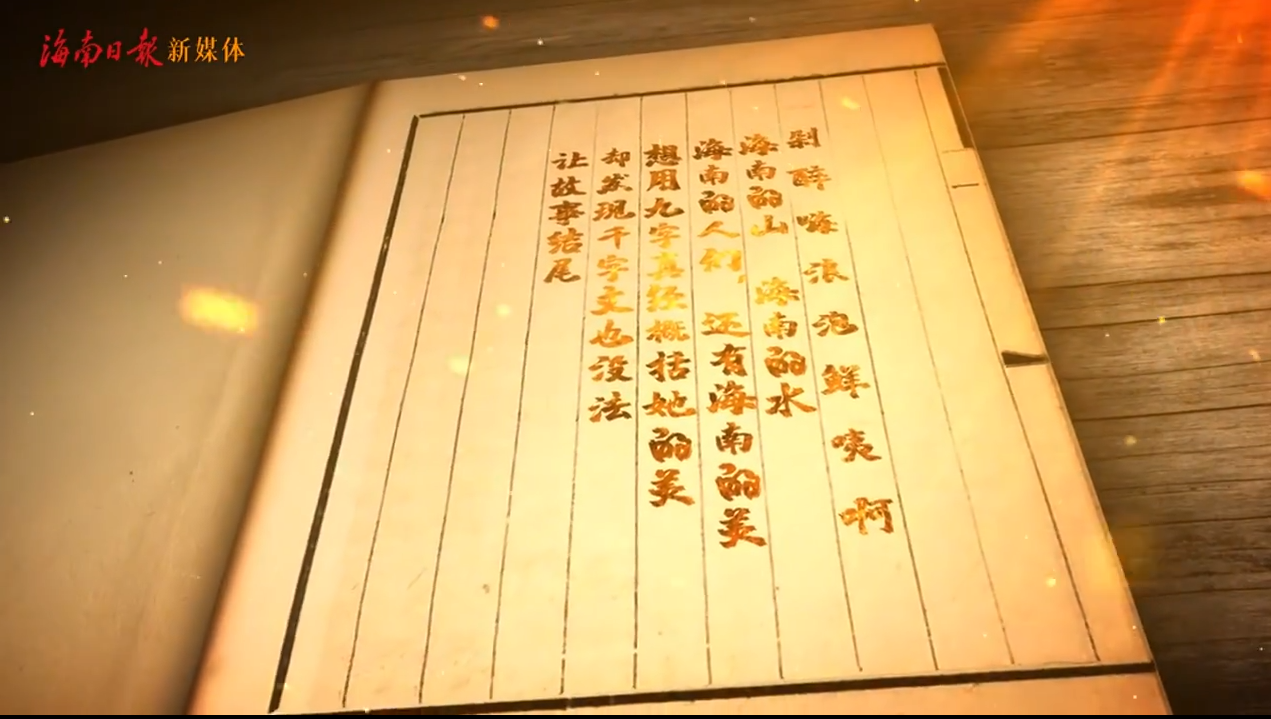 海南日报新媒体
剁醉嗨浪泡鲜咦啊
海南的山 海南的水
海南的人们,还有海南的美
想用九字真经概括她的美
却发现千字文也没法
让故事结尾